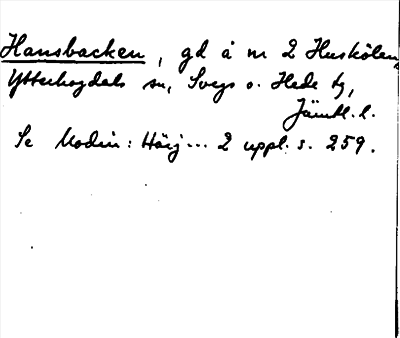 Hansbacken, gd å nr 2 Huskölen,
Ytterhogdals sn, Svegs o. Hede tg,
Jämtl. l.
Se Modin: Härj... 2 uppl. s. 259.